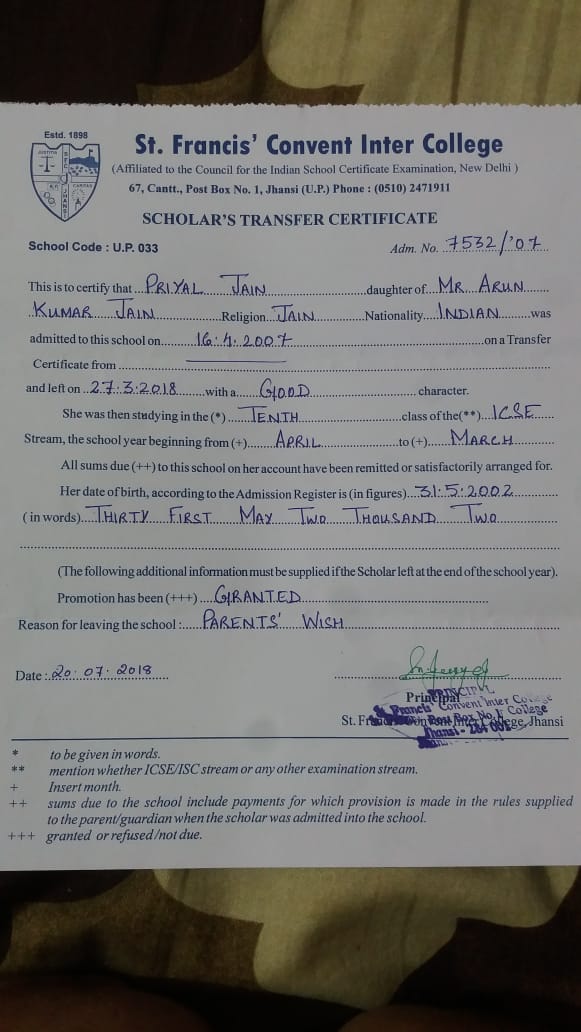 Estd. 1898
St. Francis' Convent Inter College
(Affiliated to the Council for the Indian School Certificate Examination, New Delhi )
67, Cantt., Post Box No. 1, Jhansi (U.P.) Phone : (0510) 2471911
SCHOLAR'S TRANSFER CERTIFICATE
School Code : U.P. 033 Adm. No. 7532/'07
This is to certify that PRIYAL JAIN daughter of MR. ARUN
KUMAR JAIN Religion JAIN Nationality INDIAN was
admitted to this school on 16.4.2007 on a Transfer
Certificate from
and left on 27.3.2018 with a GOOD character.
She was then studying in the (*) TENTH class of the(**) ICSE
Stream, the school year beginning from (+) APRIL to (+) MARCH
All sums due (++) to this school on her account have been remitted or satisfactorily arranged for.
Her date of birth, according to the Admission Register is (in figures) 31.5.2002
(in words) THIRTY FIRST MAY TWO THOUSAND TWO
(The following additional information must be supplied if the Scholar left at the end of the school year).
Promotion has been (+++) GRANTED
Reason for leaving the school : PARENTS' WISH
Date : 20.07.2018
Principal
PRINCIPAL
St. Francis' Convent Inter College
Post Box No. 1
Jhansi - 284 001
St. Francis' Convent Inter College, Jhansi
* to be given in words.
** mention whether ICSE/ISC stream or any other examination stream.
+ Insert month.
++ sums due to the school include payments for which provision is made in the rules supplied
to the parent/guardian when the scholar was admitted into the school.
+++ granted or refused/not due.